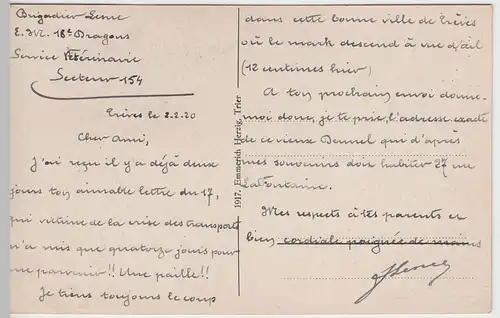 Brigadier Lesne
E. M. 18e Dragons
Service Vétérinaire
Secteur 154
Trèves le 2.2.20
Cher Ami,
J'ai reçu il y a déjà deux
jours ton aimable lettre du 17,
qui victime de la crise des transports
n'a mis que quatorze jouis pour
me parvenir!! Une paille!!
Je tiens toujours le coup
1917. Emmerich Herzig, Trier
dans cette bonne ville de Trèves
où le mark descend à vue d'œil
(12 centimes hier)
A ton prochain envoi donne-
moi donc, je te prie, l'adresse exacte
de ce vieux qui d'après
mes souvenirs doit habiter 27 rue
LaFontaine.
Mes respects à tes parents et
bien cordiale poignée de mains